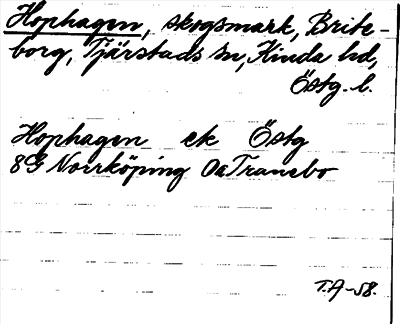 Hophagen, skogsmark, Brite-
borg, Tjärstads sn, Kinda hd,
Östg. l.
Hophagen ek Östg
8G Norrköping 0a Tranebo
T.A-58.